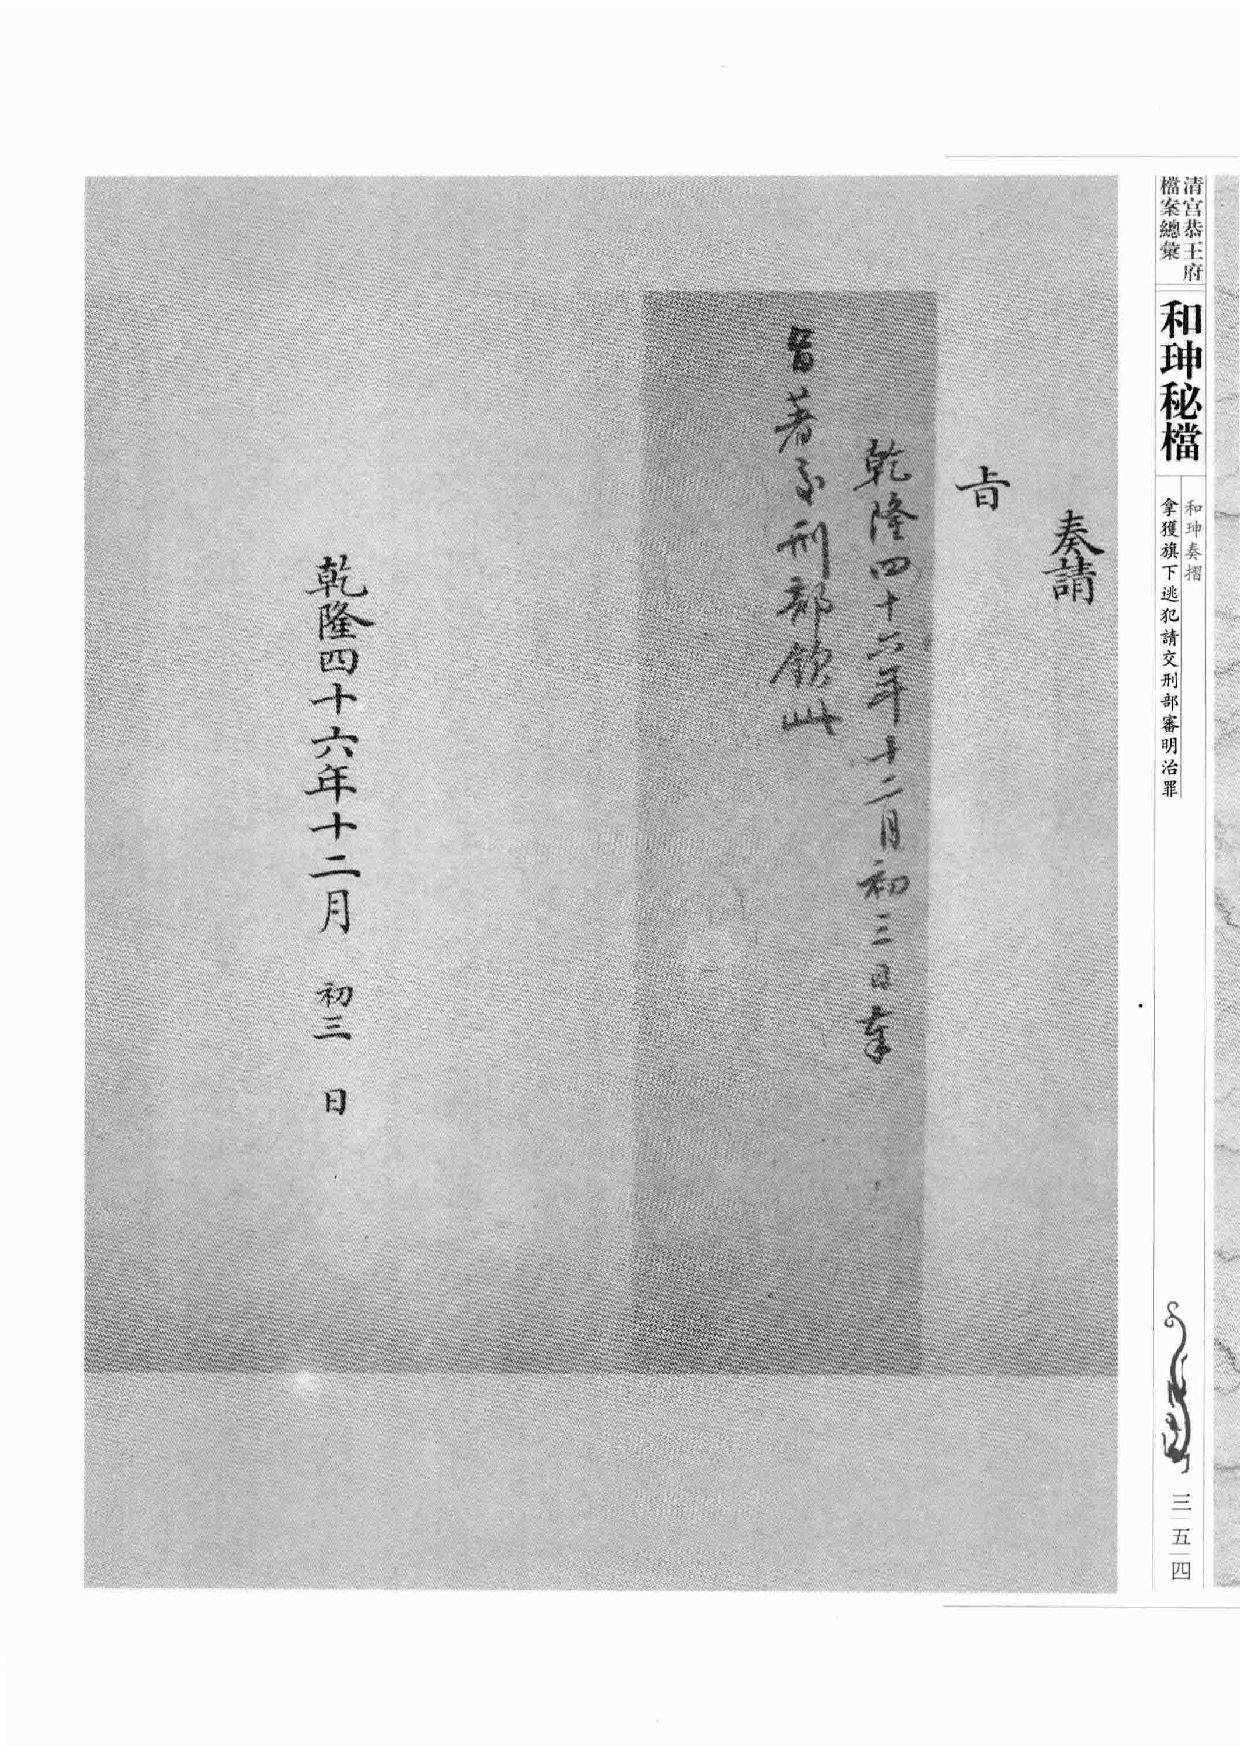 清宮恭王府
檔案總彙
和珅秘檔
和珅奏摺
拿獲旗下逃犯請交刑部審明治罪
三五四
奏請
旨
乾隆四十六年十二月初三日奉
旨著交刑部欽此
乾隆四十六年十二月 初三 日